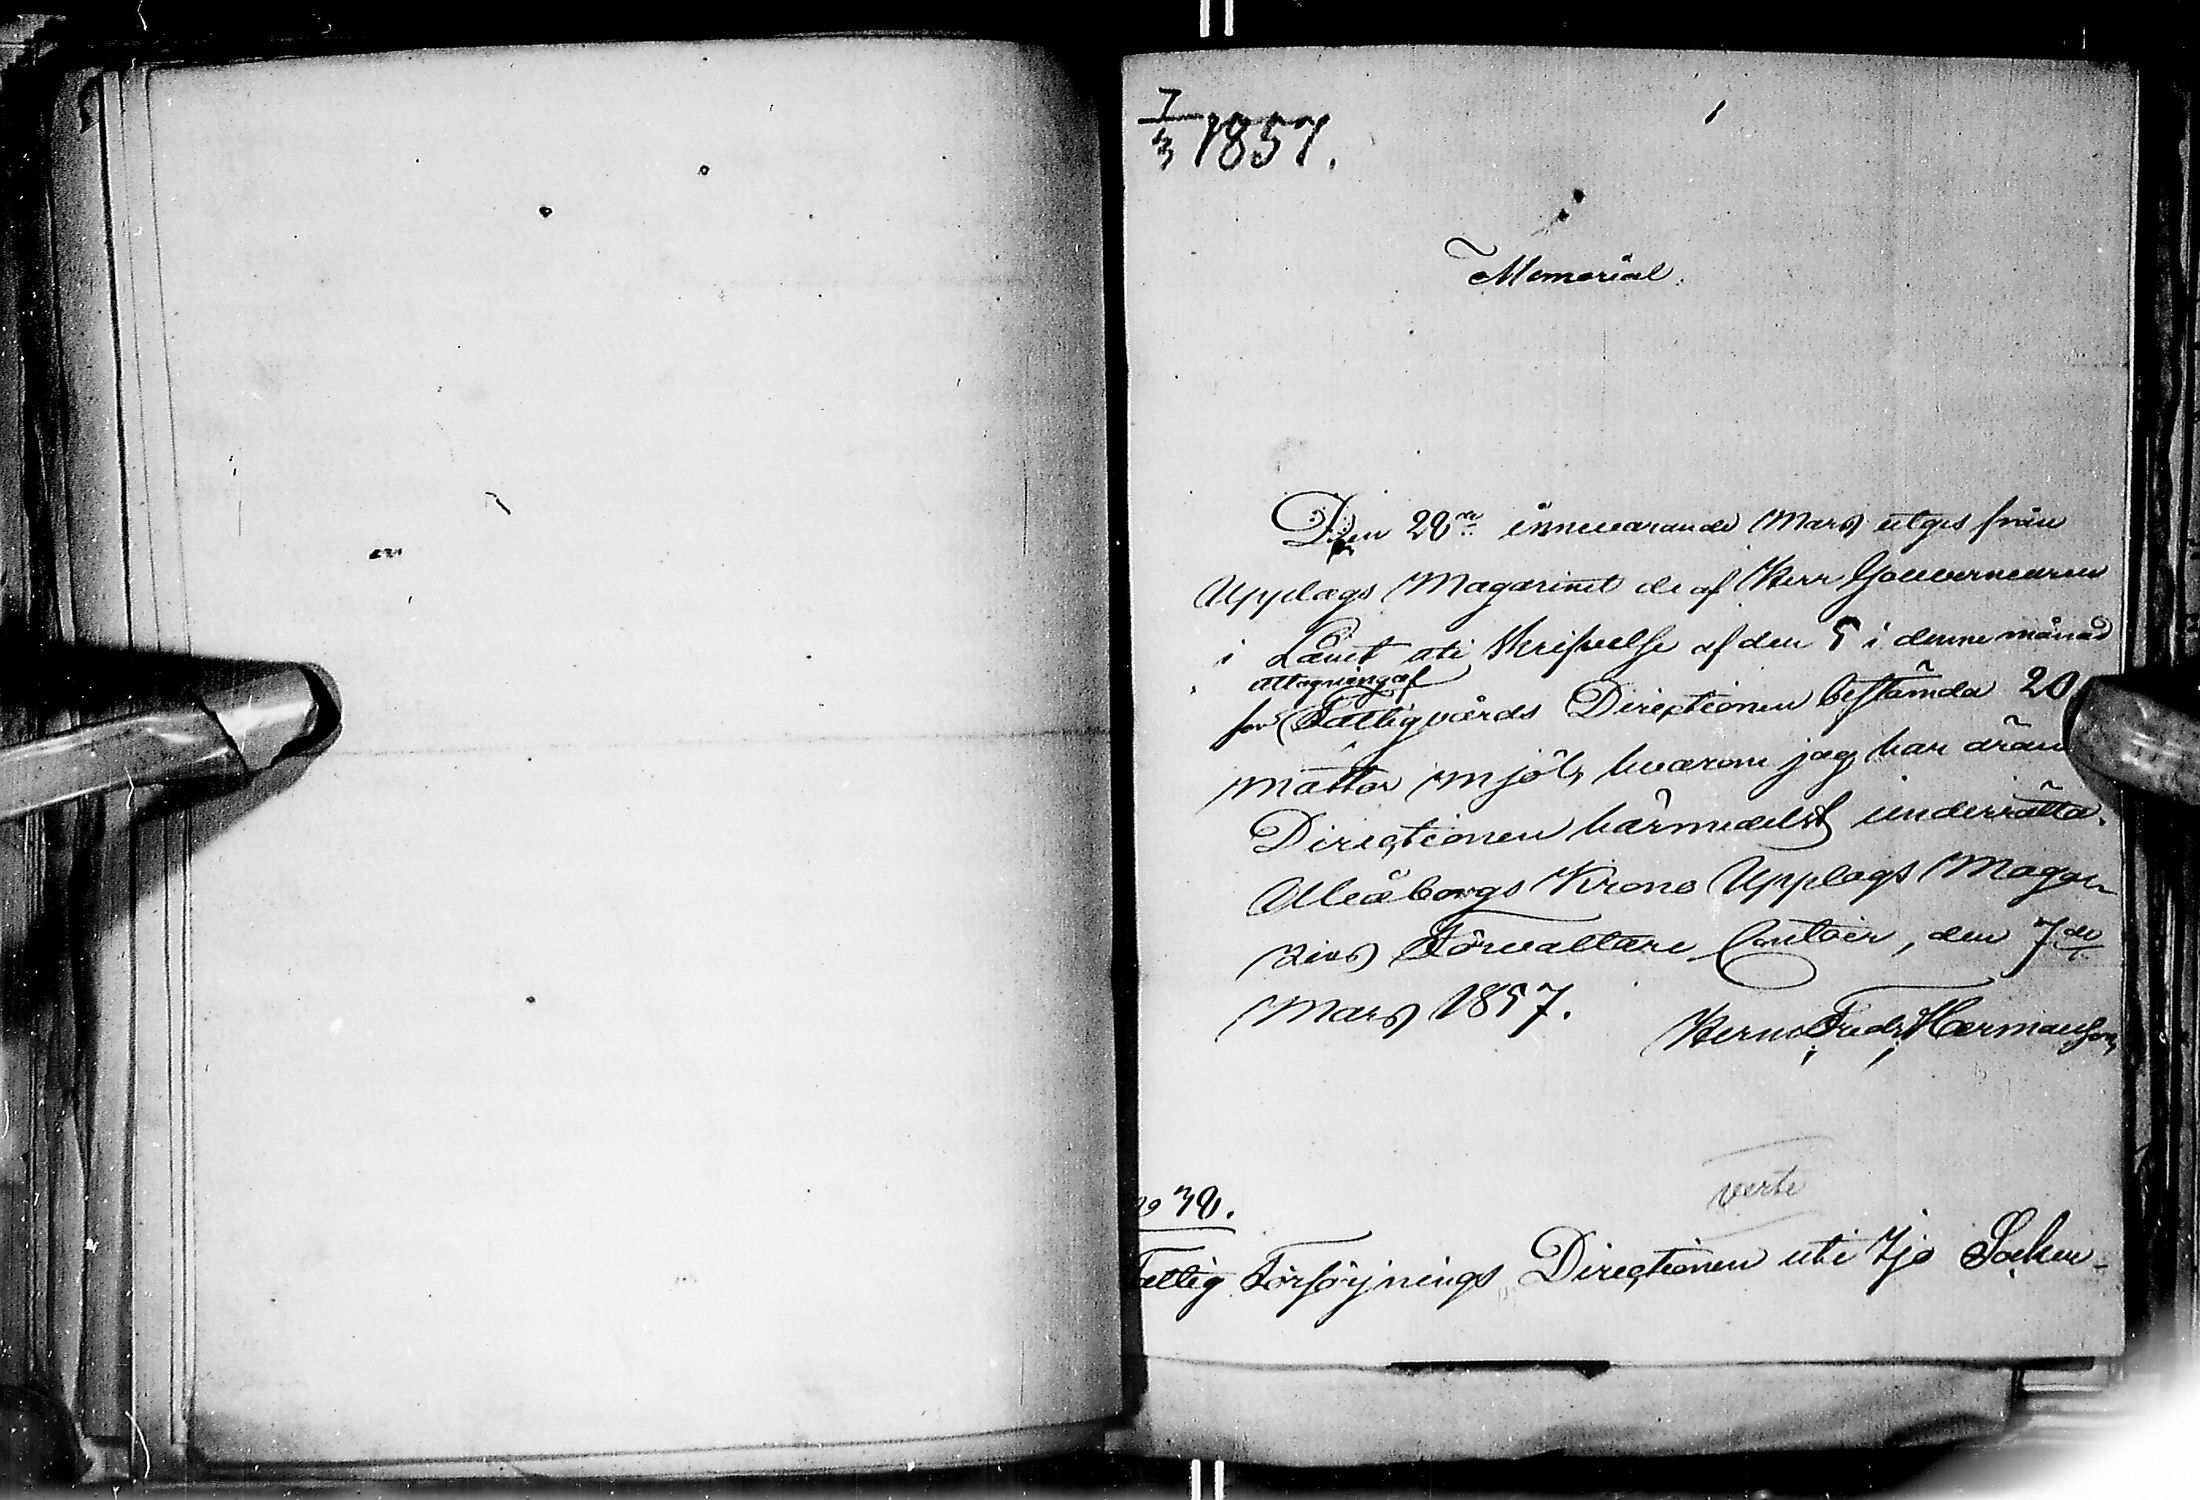 7/3 1857.
Memorial.
Den 28n innevarande Mars utges från
Upplags Magazinet de af Herr Gouverneuren
i Länet uti skrifvelse af den 5 i denne månad
uttagning af
för Fattigvårds Directionen bestämda 20
mattor mjöl, hvarom jag har äran
Directionen härmedelst underrätta.
Uleåborgs Krono Upplags Maga-
zins Förvaltare Contoir, den 7de
Mars 1857.
Herm Fredr Hermanson
verte
No 38.
Fattig Försörjnings Directionen uti Ijo Socken-